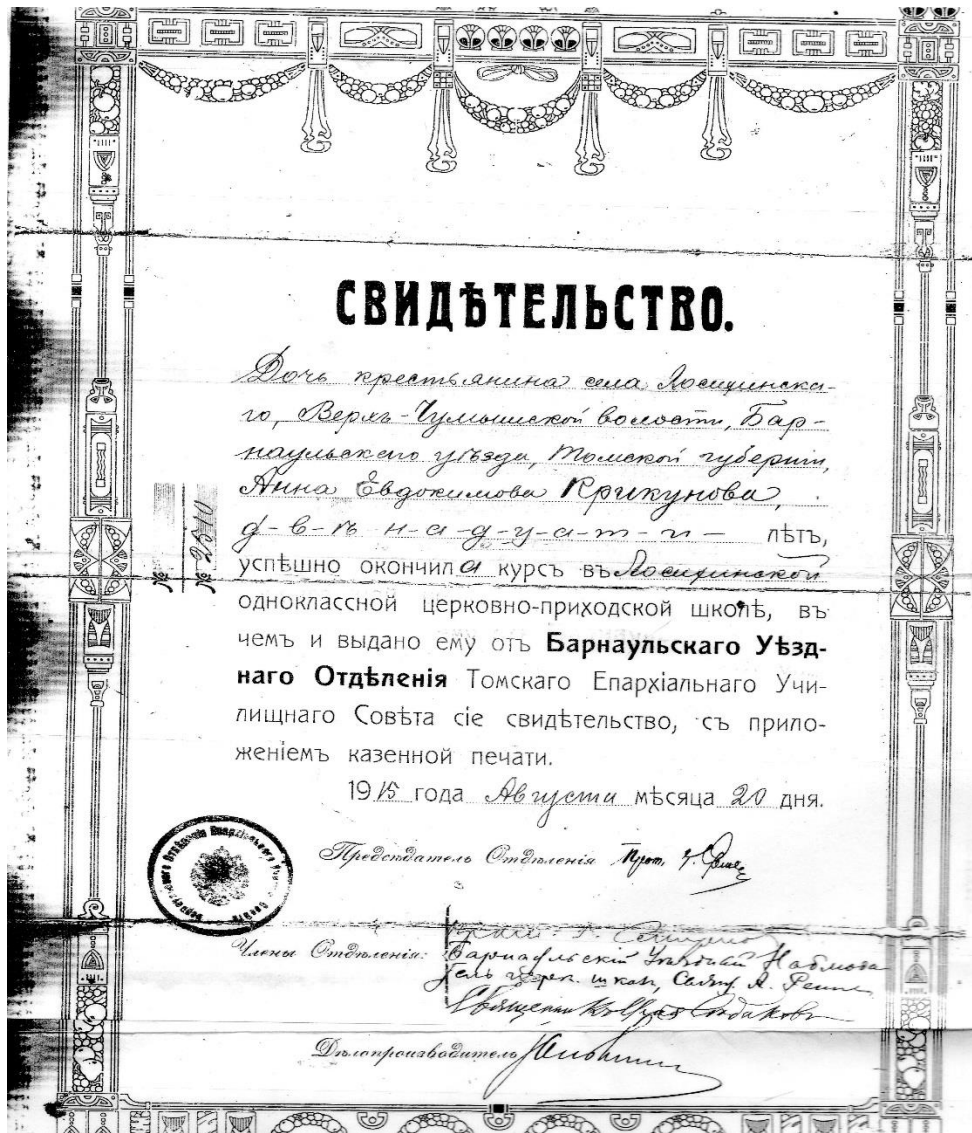 СВИДѢТЕЛЬСТВО.
Дочь крестьянина села Лосихинска-
го, Верхъ-Чумышской волости, Бар-
наульскаго уѣзда, Томской губерніи,
Анна Евдокимова Крикунова,
д-в-ѣ н-а-д-ц-а-т-и- лѣтъ,
успѣшно окончила курсъ въ Лосихинской
одноклассной церковно-приходской школѣ, въ
чемъ и выдано ему отъ Барнаульскаго Уѣзд-
наго Отдѣленія Томскаго Епархіальнаго Учи-
лищнаго Совѣта сіе свидѣтельство, съ прило-
женіемъ казенной печати.
1915 года Августа мѣсяца 20 дня.
№
№ 2310
Предсѣдатель Отдѣленія Прот.
Члены Отдѣленія:
Барнаульскій Уѣздный Наблюда
тель церк. школъ, Свящ. А.
Священникъ
Дѣлопроизводитель